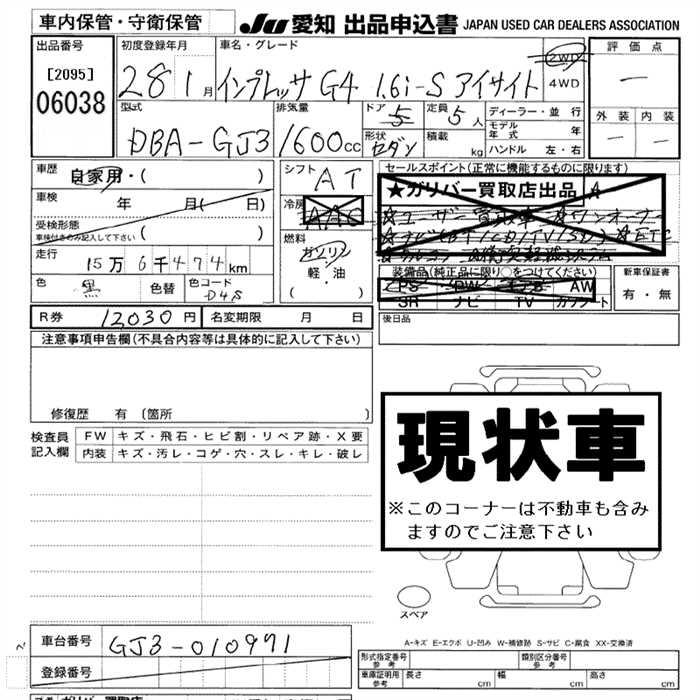 車内保管・守衛保管
JU 愛知 出品申込書 JAPAN USED CAR DEALERS ASSOCIATION
出品番号
[2095]
06038
初度登録年月
28 1月
車名・グレード
インプレッサ G4 1.6i-S アイサイト
2WD
4WD
評価点
—
外装 内装
— —
型式
DBA-GJ3
排気量
1600cc
ドア
5
定員
5人
形状
セダン
積載
kg
ディーラー・並行
モデル年式 年
ハンドル 左・右
車歴
自家用・( )
車検
年 月( 日)
受検形態
車検付きのみ記入して下さい ( )
走行
15万6千474km
色 黒 色替 色コード D4S
シフト
AT
冷房
AAC
燃料
ガソリン
軽・油
( )
セールスポイント(正常に機能するものに限ります)
★ガリバー買取店出品☆
☆ユーザー買取車 ☆ワンオーナー
☆ナビ(BT/DVD/TV/SD)☆ETC
装備品(純正品に限り〇をつけてください)
PS PW エアB AW
SR ナビ TV カワシート
新車保証書
有・無
R券 12030円 名変期限 月 日
後日品
注意事項申告欄(不具合内容等は具体的に記入して下さい)
修復歴 有〔箇所 〕
検査員記入欄
FW キズ・飛石・ヒビ割・リペア跡・X要
内装 キズ・汚レ・コゲ・穴・スレ・キレ・破レ
現状車
※このコーナーは不動車も含み
ますのでご注意下さい
スペア
A-キズ E-エクボ U-凹み W-補修跡 S-サビ C-腐食 XX-交換済
車台番号 GJ3-010991
登録番号
形式指定番号 参考
類別区分番号 参考
車庫証明用 参考 長さ cm 幅 cm 高さ cm
ガリバー買取店